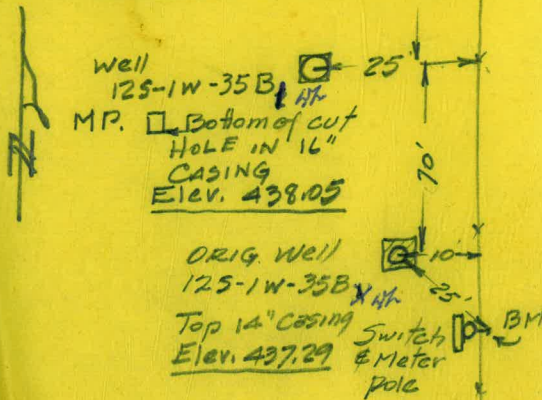 Well
12S-1W-35B1
25
M.P. Bottom of cut
HOLE IN 16"
CASING
Elev. 438.05
70'
ORIG. Well
12S-1W-35B
10'
25'
Top 14" Casing
Elev. 437.29
Switch
& Meter
pole
BM
N